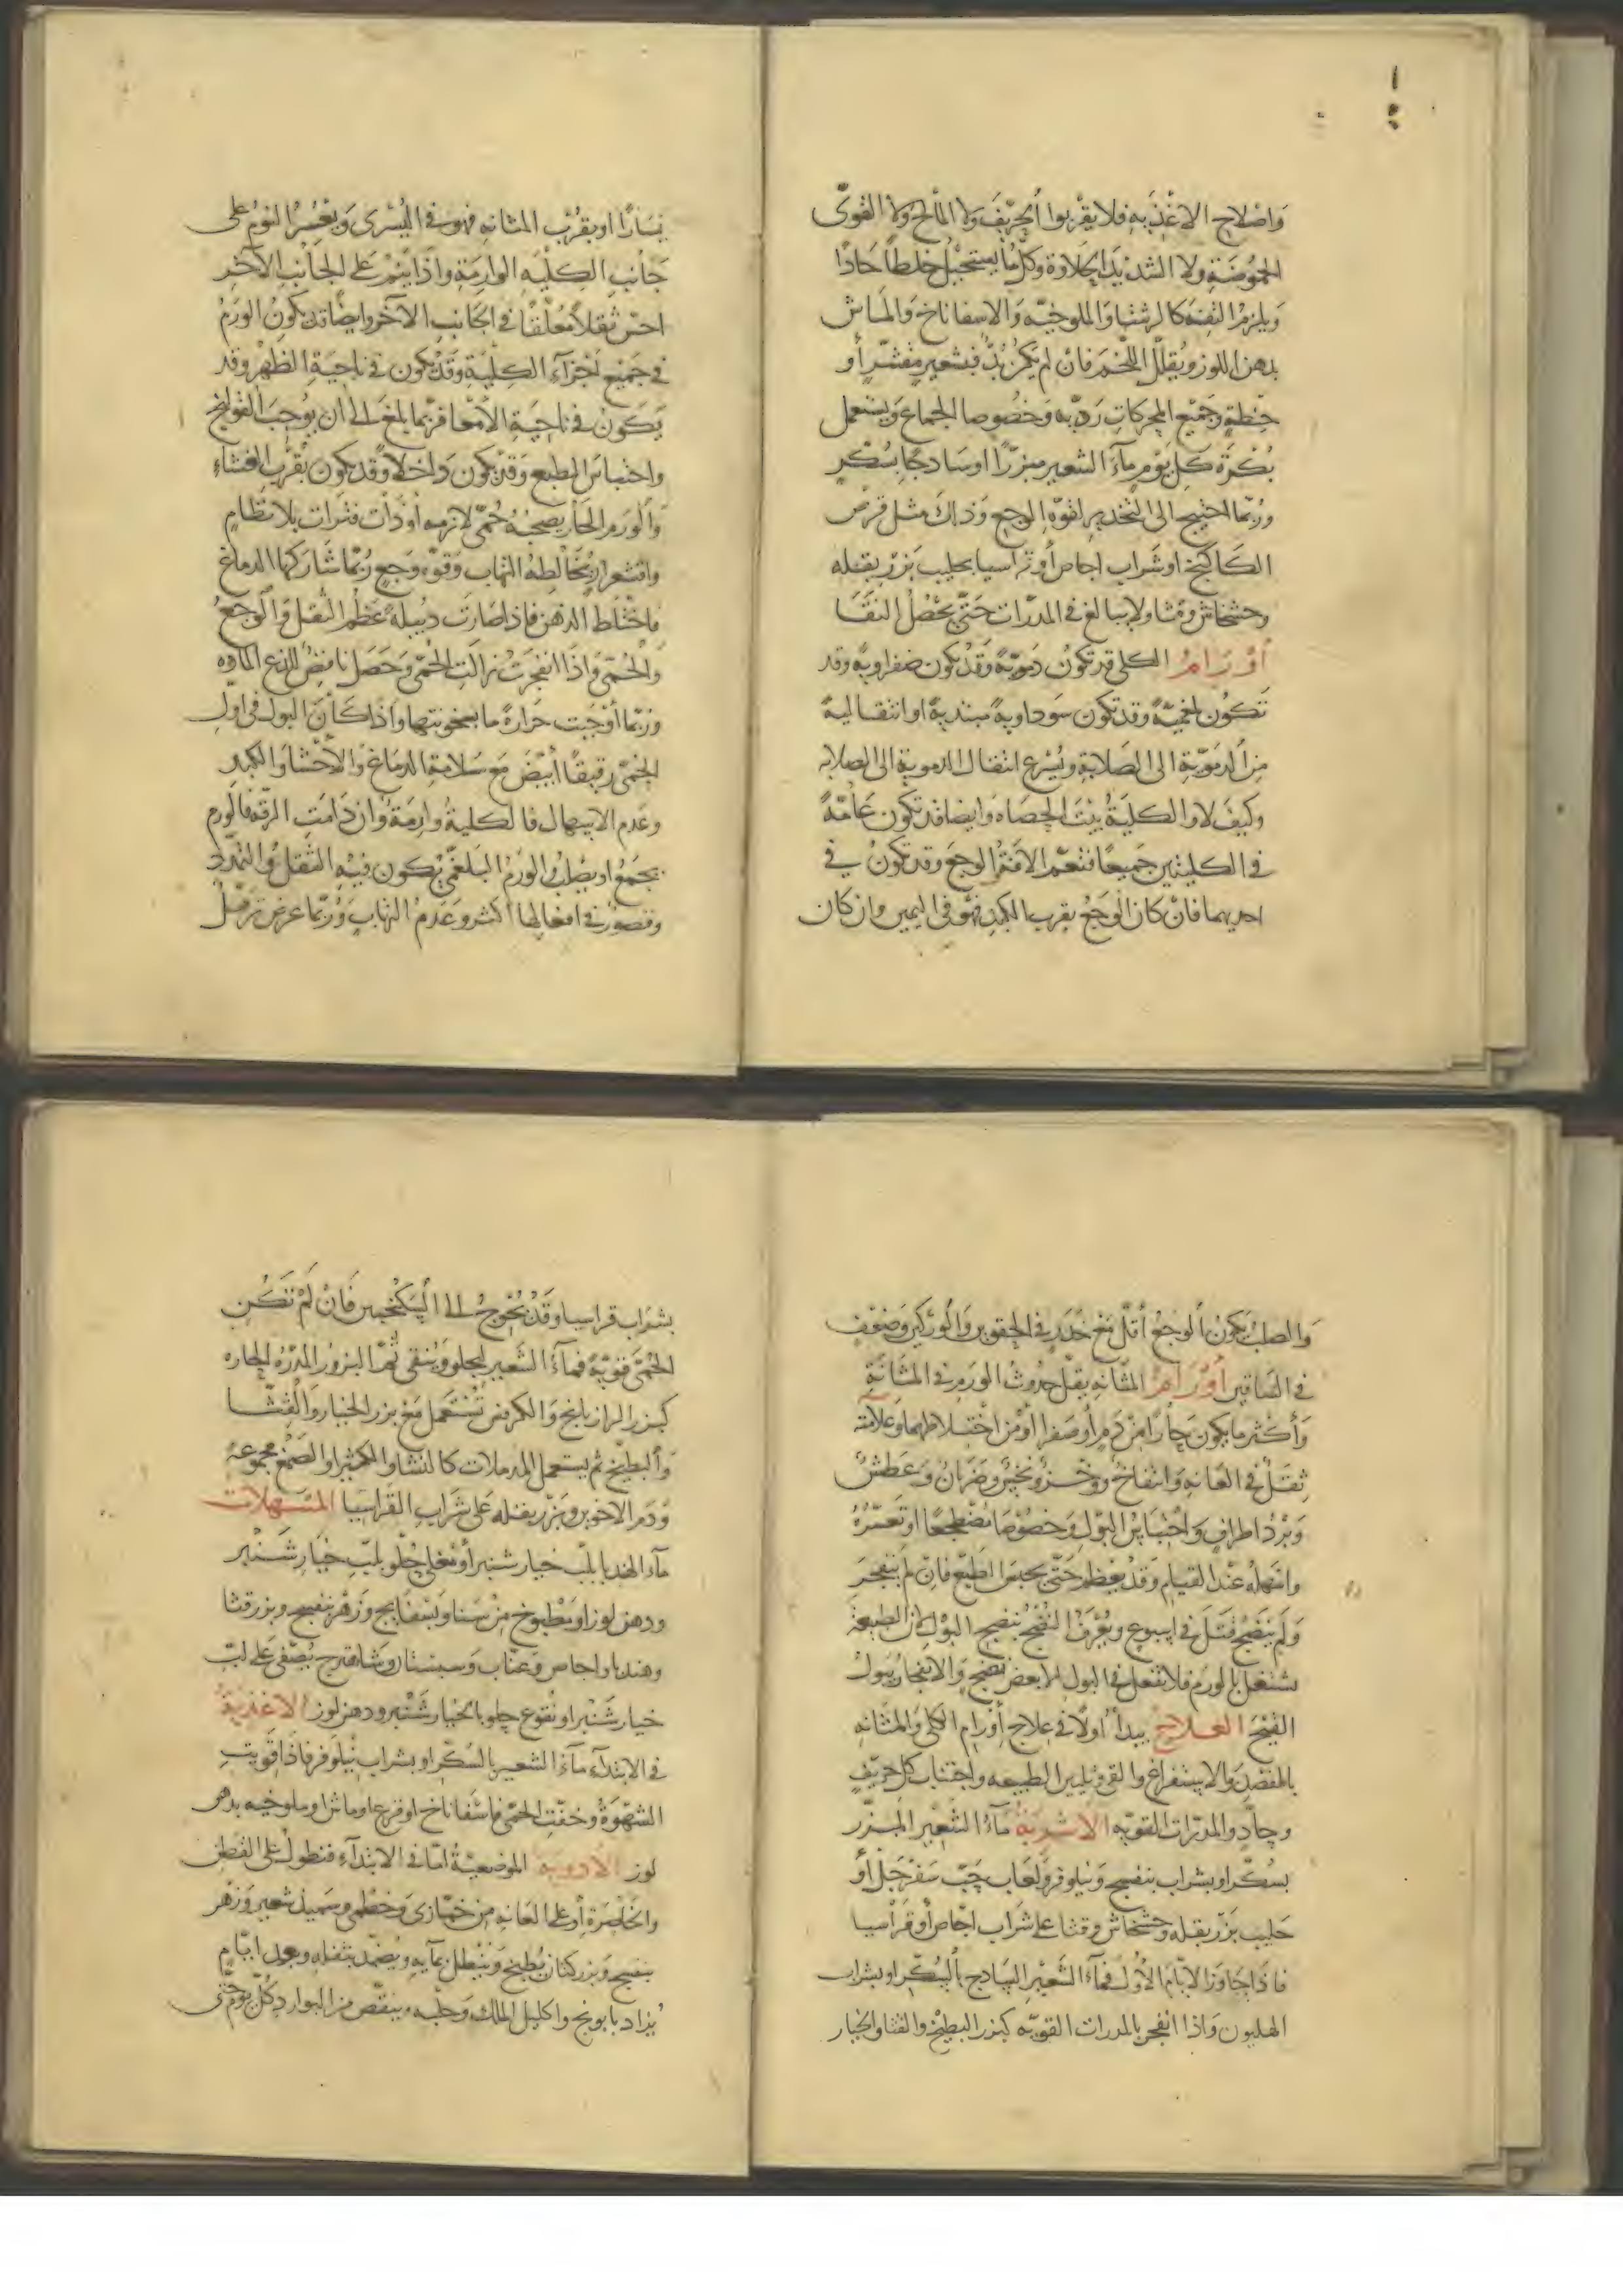 واصلاح الاغذيه فلا يقربوا الحرّيف ولا المالح ولا القوىّ
الحموضة ولا الشديد الحلاوة وكلّ ما يستحيل خلطاً حادًا
ويلزم التفه كالرشتا والملوخيّه والاسفاناخ والماش
بدهن اللوز ويقلّل اللحم فان لم يكن بدّ فبشعير مقشّر أو
حنطة وجميع المحركات رديّه وخصوصا الجماع ويستعمل
بكرة كل يوم ماء الشعير مبزّرًا او ساذجًا بسكّر
وربّما احتيج الى التخدير لقوّة الوجع وذلك مثل قرص
الكاكنج او شراب اجاص أو قراسيا بحليب بزر بقله
وخشخاش وقثا ولا يبالغ فى المدرّات حتّى يحصل النقا
أورام الكلى قد تكون دمويّة وقد يكون صفراويّة وقد
تكون بلغميّة وقد تكون سوداوية مبتدية او انتقالية
من الدمويّة الى الصلابة ويسرع انتقال الدموية الى الصلابه
وكيف لا والكلية بيت الحصاه وايضا قد تكون عامّة
فى الكليتين جميعًا فتعم الافة والوجع وقد تكون فى
احديهما فان كان الوجع بقرب الكبد فهو فى اليمين وان كان
يسارًا او بقرب المثانه فهو فى اليسرى ويعسر النوم على
جانب الكليه الوارمة واذا ينم على الجانب الآخر
احسّ ثقلاً معلّقًا فى الجانب الآخر وايضًا قد يكون الورم
فى جميع اجزاء الكلية وقد يكون فى ناحية الظهر وقد
يكون فى ناحية الأمعا فربّما بلغ الى ان يوجب القولنج
واحتباس الطبع وقد يكون داخلاً وقد يكون بقرب الغشاء
والورم الحار يصحبه حمّى لازمه أو ذات فترات بلا نظام
واقشعرار يخالطه التهاب وقوّه وجع ربّما شاركها الدماغ
فاختلط الذهن فاذا صارت دبيلة عظم الثقل والوجع
والحمّى واذا انفجرت زالت الحمّى وحصل نافض للذع المادّه
وربّما أوجبت حرارةً ما بسخونتها واذا كان البول فى اول
الحمّى رقيقًا أبيض مع سلامة الدماغ والأحشا والكبد
وعدم الاسهال فالكلية وارمة وان دامت الرقّه فالورم
يجمع او يصلب والورم البلغمّى يكون فيه الثقل والتمدد
وقصور فى افعالها اكثر وعدم التهاب وربّما عرض ترهّل
والصلب يكون الوجع أقلّ مع خدر فى الحقوين والوركين وضعف
فى الساقين أورام المثانه يقلّ حدوث الورم فى المثانة
وأكثر ما يكون حارًا من دم أو صفرا أو من اختلاطهما وعلامته
ثقل فى العانه وانتفاخ ووخز ونخس وضربان وعطش
وبرد اطراف واحتباس البول وخصوصا مضطجعًا او تعسّره
واسهله عند القيام وقد يعظم حتّى يحبس الطبع فان لم ينفجر
ولم ينضج قتل فى اسبوع ويعرف النضج بنضج البول لان الطبيعة
تشتغل بالورم فلا تفعل فى البول الا بعض نضج والانفجار ببول
القيح العلاج يبدأ اولًا فى علاج أورام الكلى والمثانه
بالفصد والاستفراغ والقى وتليين الطبيعه واجتناب كل حريف
وحادّ والمدرّات القويّه الاشربة ماء الشعير المبزّر
بسكّر او بشراب بنفسج ونيلوفر ولعاب حبّ سفرجل أو
حليب بزر بقله وخشخاش وقثا على شراب اجّاص أو قراسيا
فاذا جاوز الايّام الاول فماء الشعير الساذج بالسكّر او بشراب
الهليون واذا انفجر بالمدرات القويّه كبزر البطيخ والقثا والخيار
بشراب قراسيا وقد يحوج الى السكنجبين فان لم تكن
الحمّى قويّة فماء الشعير ليجلو وينقى ثم البزور المدرّه الحاره
كبزر الرازيانج والكرفس تستعمل مع بزر الخيار والقثّا
والبطيخ ثم يستعمل المدملات كالنشا والكثيرا والصمغ مجموعة
ودم الاخوين وبزر بقله على شراب القراسيا المسهلات
ماء الهندبا بلبّ خيار شنبر أو مغلى حلو بلبّ خيار شنبر
ودهن لوز او مطبوخ من سنا وبسفايج وزهر بنفسج وبزر قثا
وهندبا واجاص وعنّاب وسبستان وشاهترج يصفّى على لبّ
خيار شنبر او نقوع حلو بالخيار شنبر ودهن لوز الاغذية
فى الابتداء ماء الشعير بالسكّر او بشراب نيلوفر فاذا قويت
الشهوة وخفّت الحمّى فاسفاناخ او قرعا وماش او ملوخيه بدهن
لوز الادوية الموضعيّة امّا فى الابتداء فنطول على القطن
والخاصرة أو على العانه من خبّازى وخطمى وسميذ شعير وزهر
بنفسج وبزر كتان يطبخ وينطل بمآيه ويضمّد بثفله وبعد ايّام
يزاد بابونج واكليل الملك وحلبه وينقص من البوارد كلّ يوم حتّى